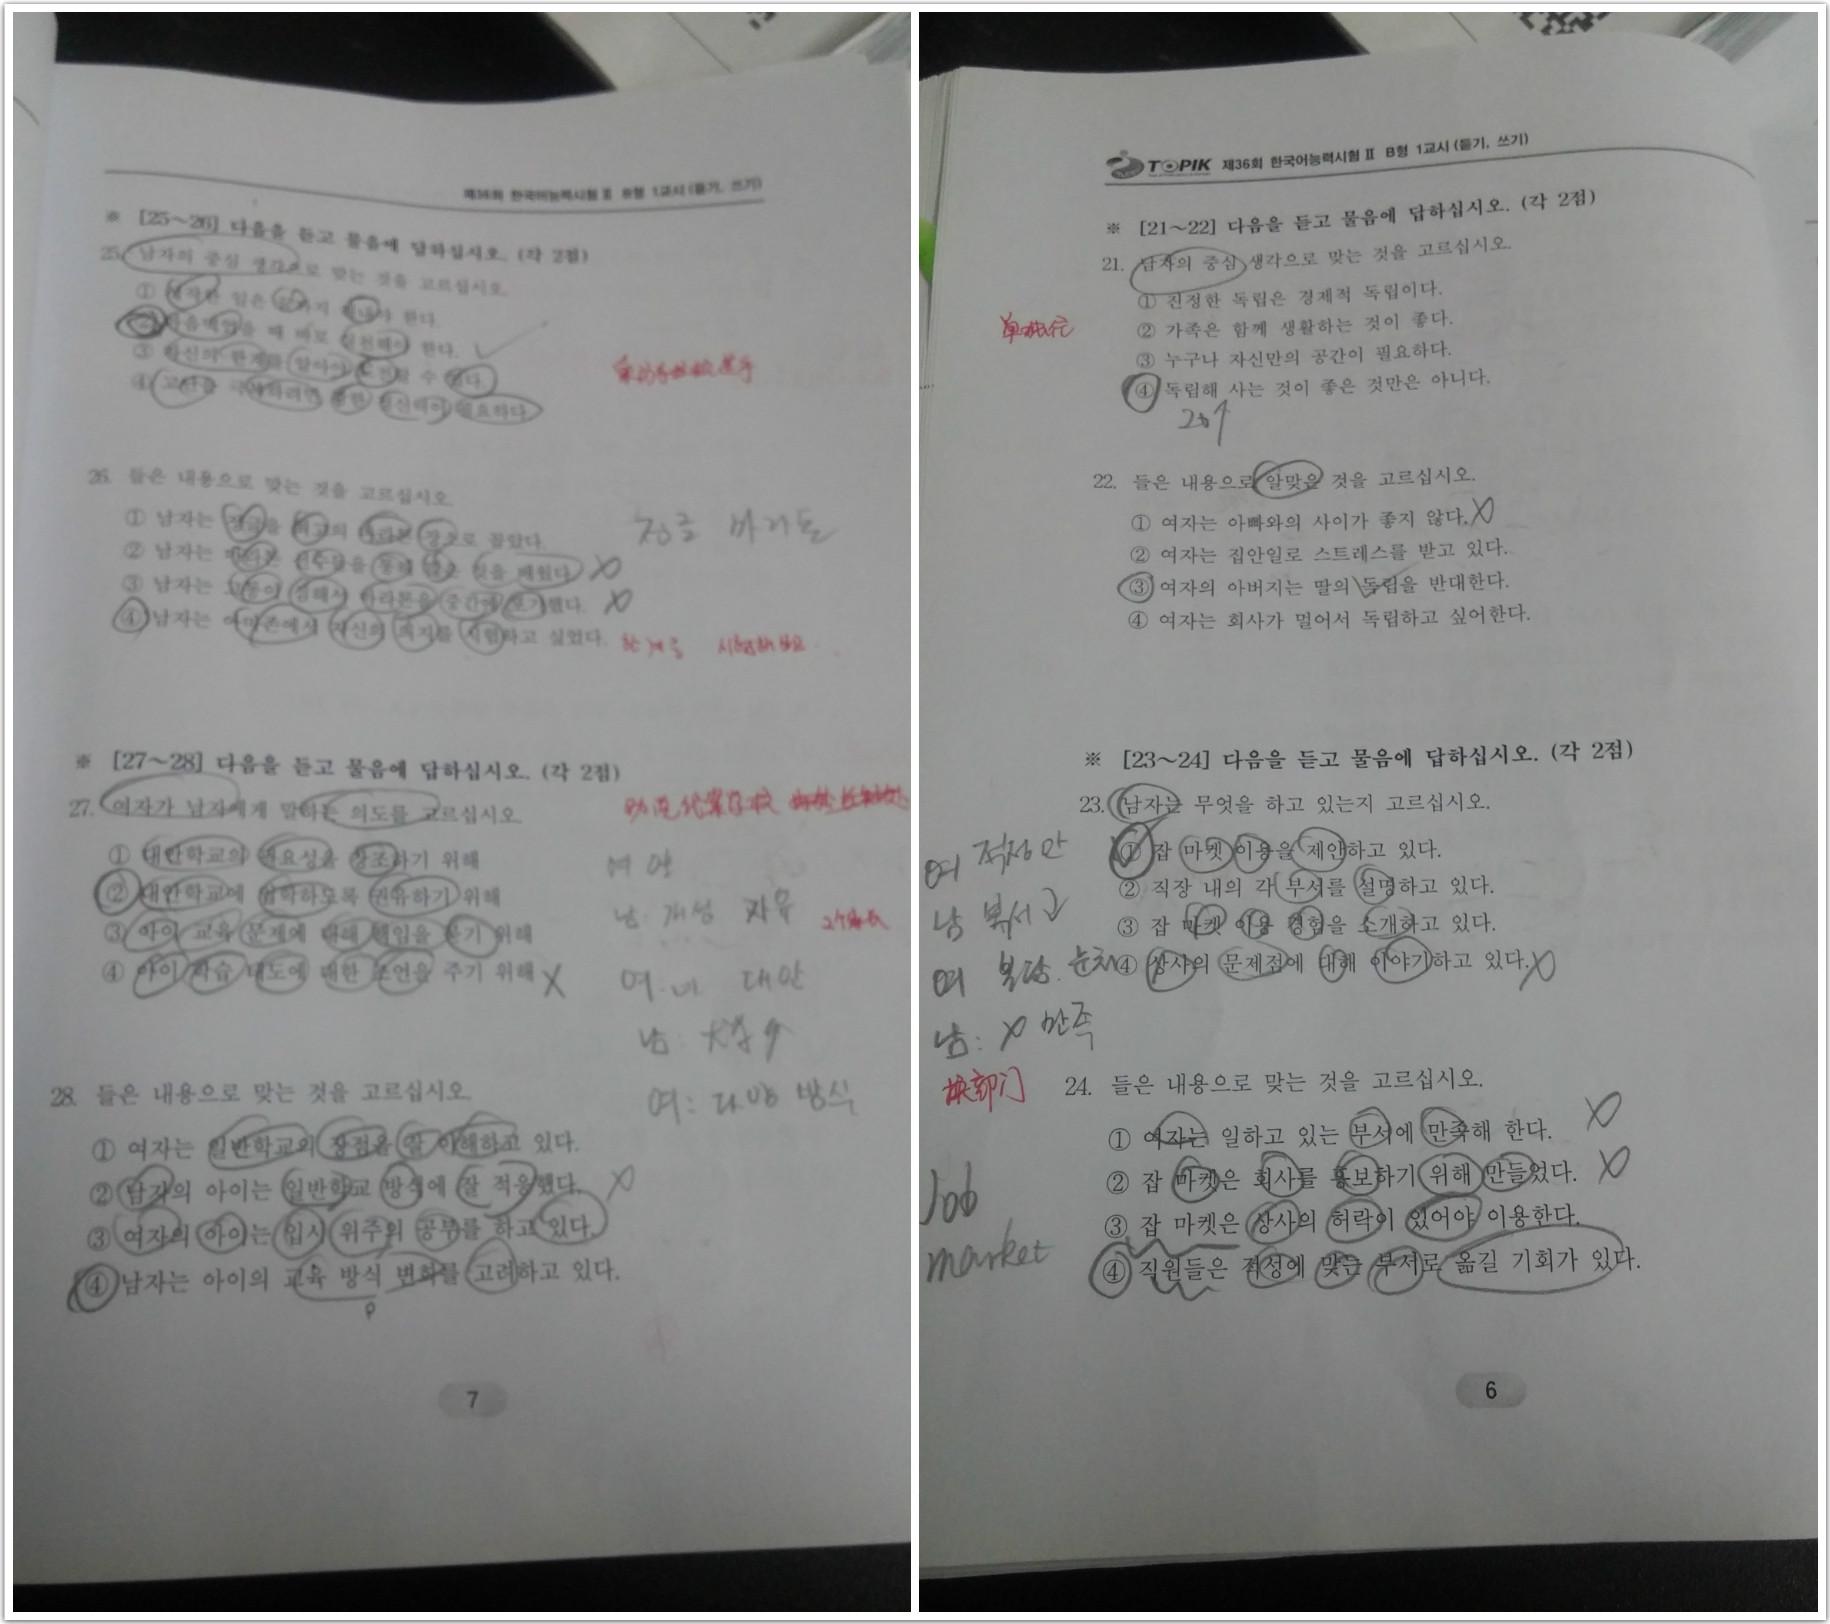 제36회 한국어능력시험 Ⅱ B형 1교시 (듣기, 쓰기)
※ [25~26] 다음을 듣고 물음에 답하십시오. (각 2점)
25. 남자의 중심 생각으로 맞는 것을 고르십시오.
① 한 일은 한다.
② 마음먹었을 때 바로 실천해야 한다.
③ 자신의 한계를 알아야 도전할 수 있다.
④ 고난을 극복하려면 강한 정신력이 필요하다.
26. 들은 내용으로 맞는 것을 고르십시오.
① 남자는 정글을 최고의 마라톤 장소로 꼽았다.
② 남자는 마라톤 선수들을 통해 많은 것을 배웠다.
③ 남자는 고통이 심해서 마라톤을 중간에 포기했다.
④ 남자는 아마존에서 자신의 의지를 시험하고 싶었다.
정글
※ [27~28] 다음을 듣고 물음에 답하십시오. (각 2점)
27. 여자가 남자에게 말하는 의도를 고르십시오.
① 대안학교의 필요성을 강조하기 위해
② 대안학교에 입학하도록 권유하기 위해
③ 아이 교육 문제에 대해 책임을 묻기 위해
④ 아이 학습 태도에 대한 조언을 주기 위해
남: 개성 자유
대안
남: 大学
여: 다양 방식
28. 들은 내용으로 맞는 것을 고르십시오.
① 여자는 일반학교의 장점을 잘 이해하고 있다.
② 남자의 아이는 일반학교 방식에 잘 적응했다.
③ 여자의 아이는 입시 위주의 공부를 하고 있다.
④ 남자는 아이의 교육 방식 변화를 고려하고 있다.
7
TOPIK 제36회 한국어능력시험 Ⅱ B형 1교시 (듣기, 쓰기)
※ [21~22] 다음을 듣고 물음에 답하십시오. (각 2점)
21. 남자의 중심 생각으로 맞는 것을 고르십시오.
① 진정한 독립은 경제적 독립이다.
② 가족은 함께 생활하는 것이 좋다.
③ 누구나 자신만의 공간이 필요하다.
④ 독립해 사는 것이 좋은 것만은 아니다.
22. 들은 내용으로 알맞은 것을 고르십시오.
① 여자는 아빠와의 사이가 좋지 않다.
② 여자는 집안일로 스트레스를 받고 있다.
③ 여자의 아버지는 딸의 독립을 반대한다.
④ 여자는 회사가 멀어서 독립하고 싶어한다.
※ [23~24] 다음을 듣고 물음에 답하십시오. (각 2점)
23. 남자는 무엇을 하고 있는지 고르십시오.
① 잡 마켓 이용을 제안하고 있다.
② 직장 내의 각 부서를 설명하고 있다.
③ 잡 마켓 이용 경험을 소개하고 있다.
④ 상사의 문제점에 대해 이야기하고 있다.
여
남
여
남: X 만족
换部门
24. 들은 내용으로 맞는 것을 고르십시오.
① 여자는 일하고 있는 부서에 만족해 한다.
② 잡 마켓은 회사를 홍보하기 위해 만들었다.
③ 잡 마켓은 상사의 허락이 있어야 이용한다.
④ 직원들은 적성에 맞는 부서로 옮길 기회가 있다.
Job
market
6